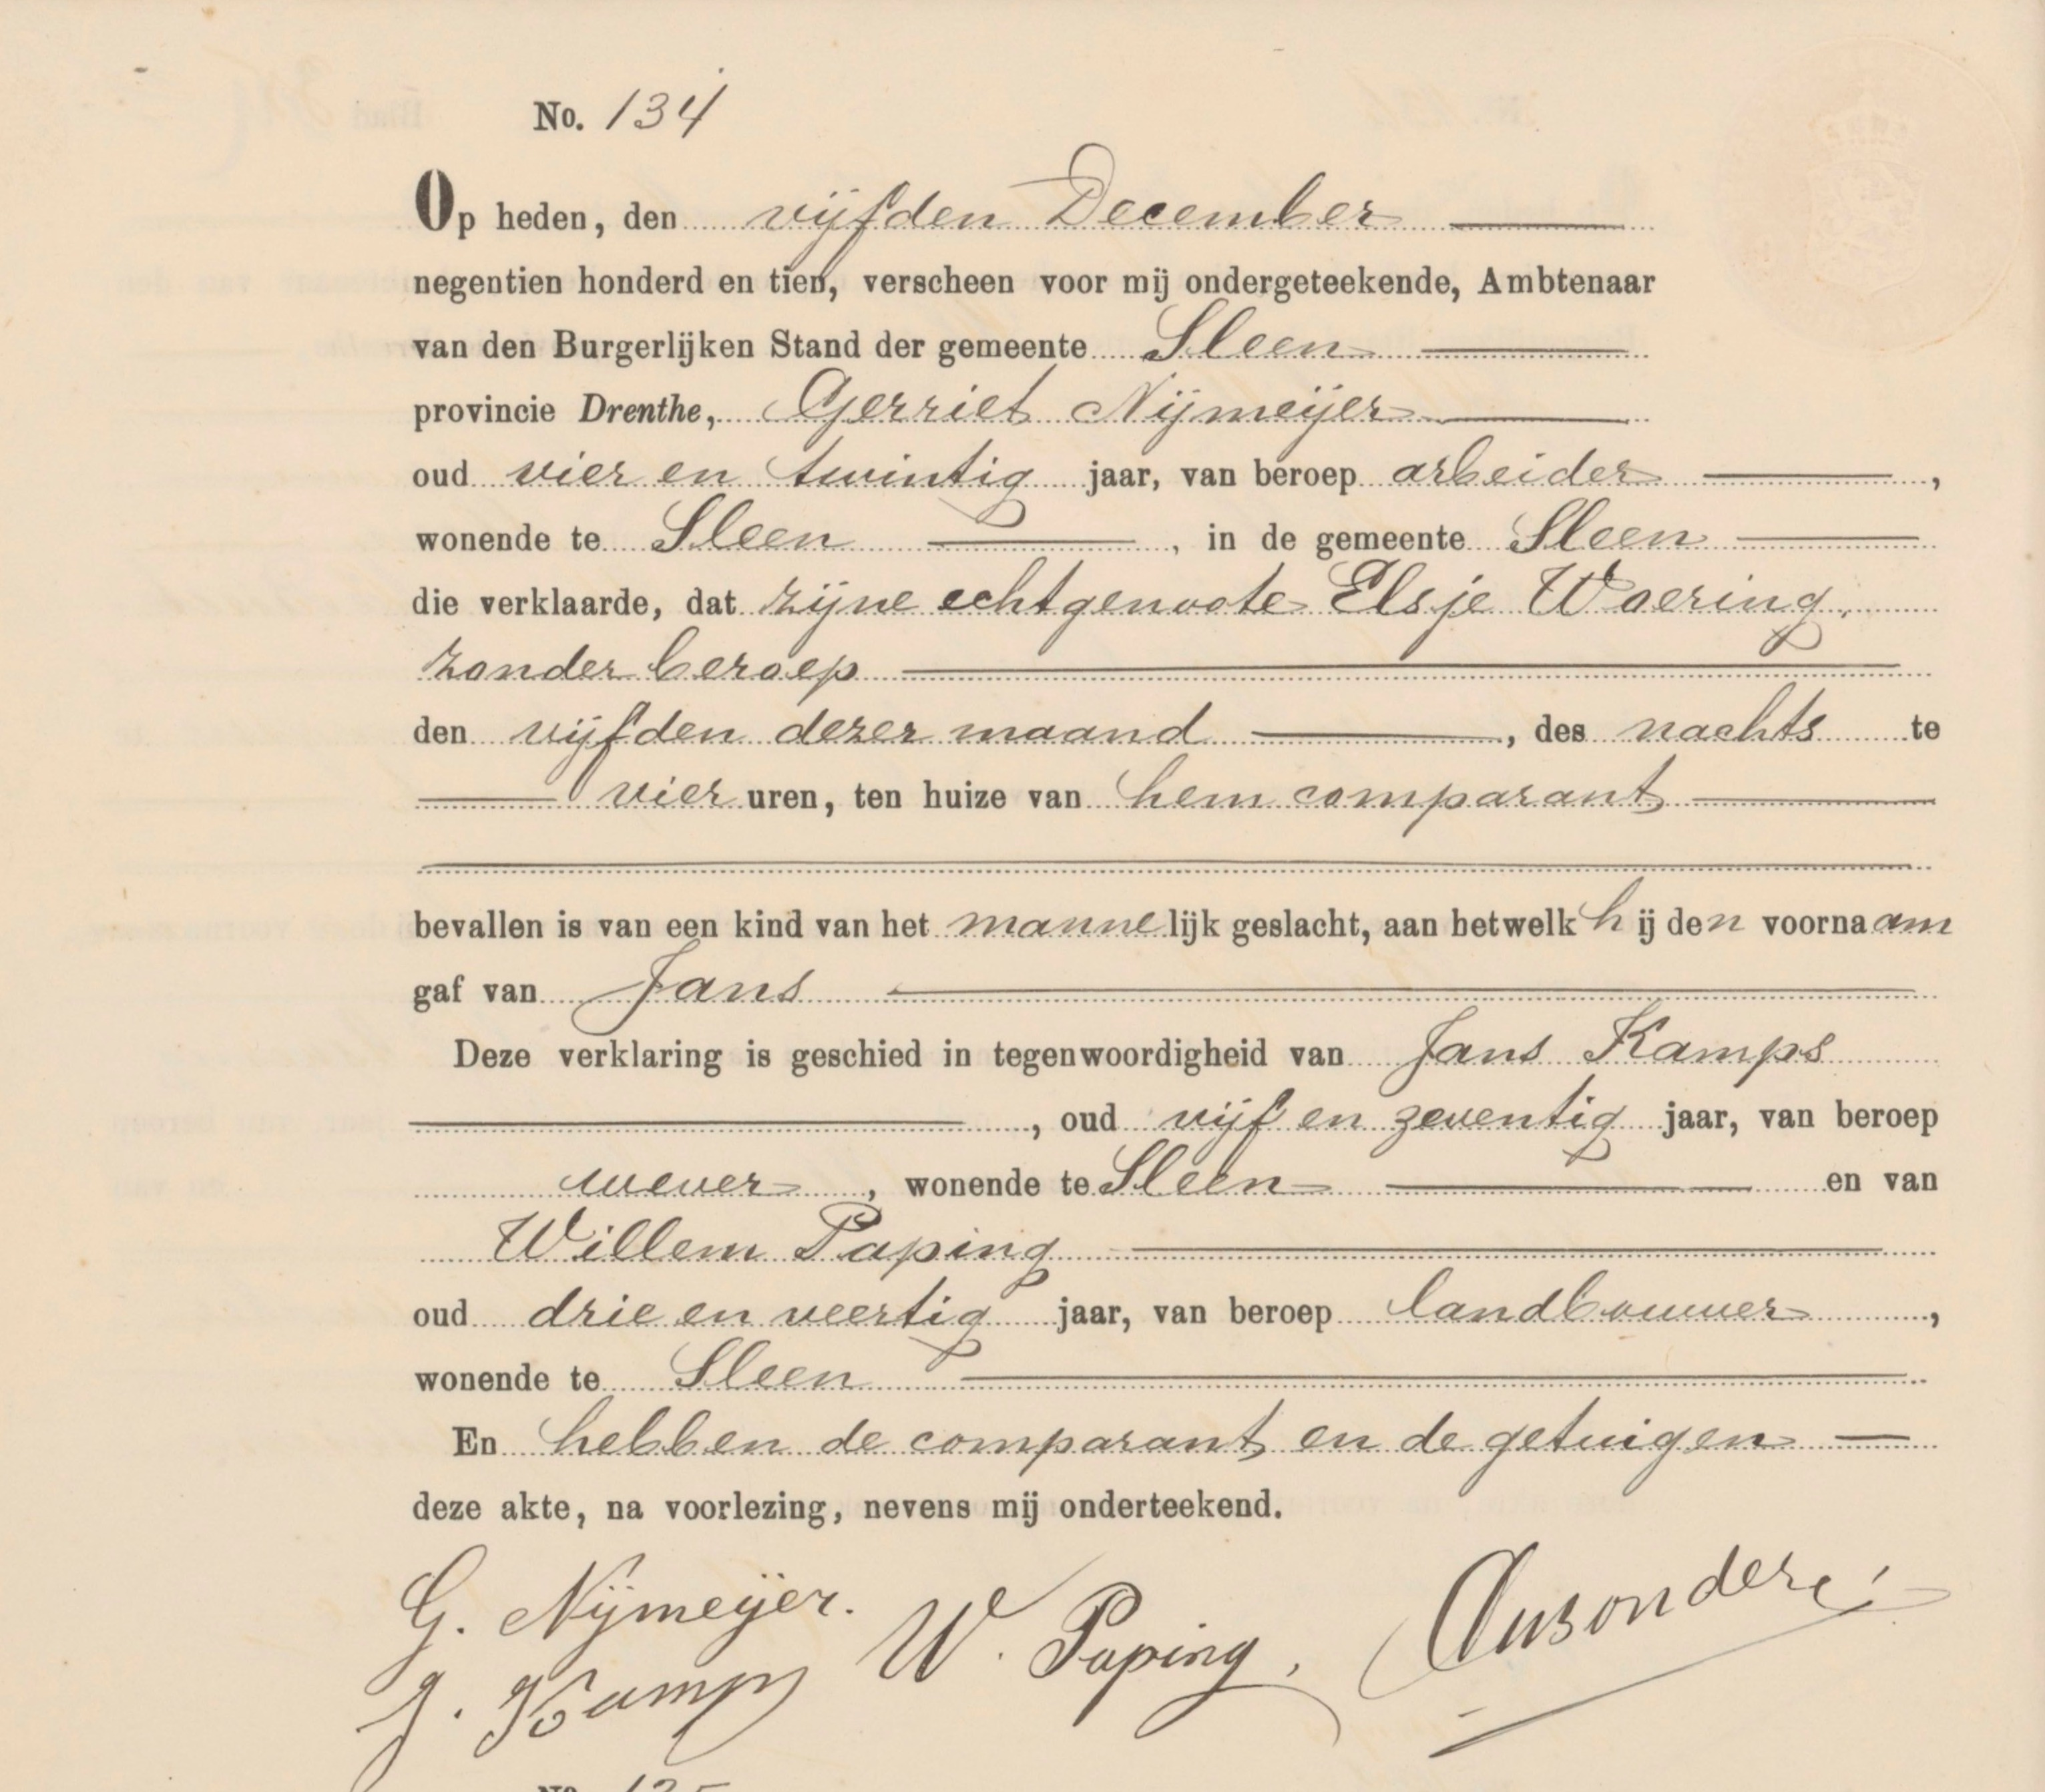 No. 134
Op heden, den vijfden December
negentien honderd en tien, verscheen voor mij ondergeteekende, Ambtenaar
van den Burgerlijken Stand der gemeente Sleen
provincie Drenthe, Gerriet Nijmeijer
oud vier en twintig jaar, van beroep arbeider,
wonende te Sleen, in de gemeente Sleen
die verklaarde, dat zijne echtgenoote Elsje Woering,
zonder beroep
den vijfden dezer maand, des nachts te
vier uren, ten huize van hem comparant
bevallen is van een kind van het mannelijk geslacht, aan hetwelk hij den voornaam
gaf van Jans
Deze verklaring is geschied in tegenwoordigheid van Jans Kamps
, oud vijf en zeventig jaar, van beroep
wever, wonende te Sleen en van
Willem Paping
oud drie en veertig jaar, van beroep landbouwer,
wonende te Sleen
En hebben de comparant en de getuigen
deze akte, na voorlezing, nevens mij onderteekend.
G. Nijmeijer.
J. Kamps W. Paping,
No. 135